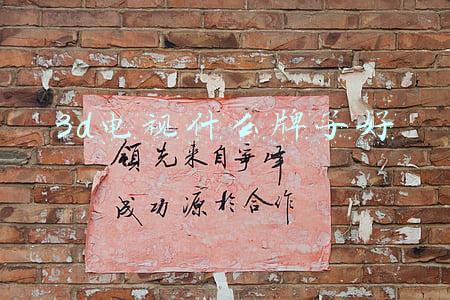 3d电视什么牌子好
领先来自争峰
成功源于合作